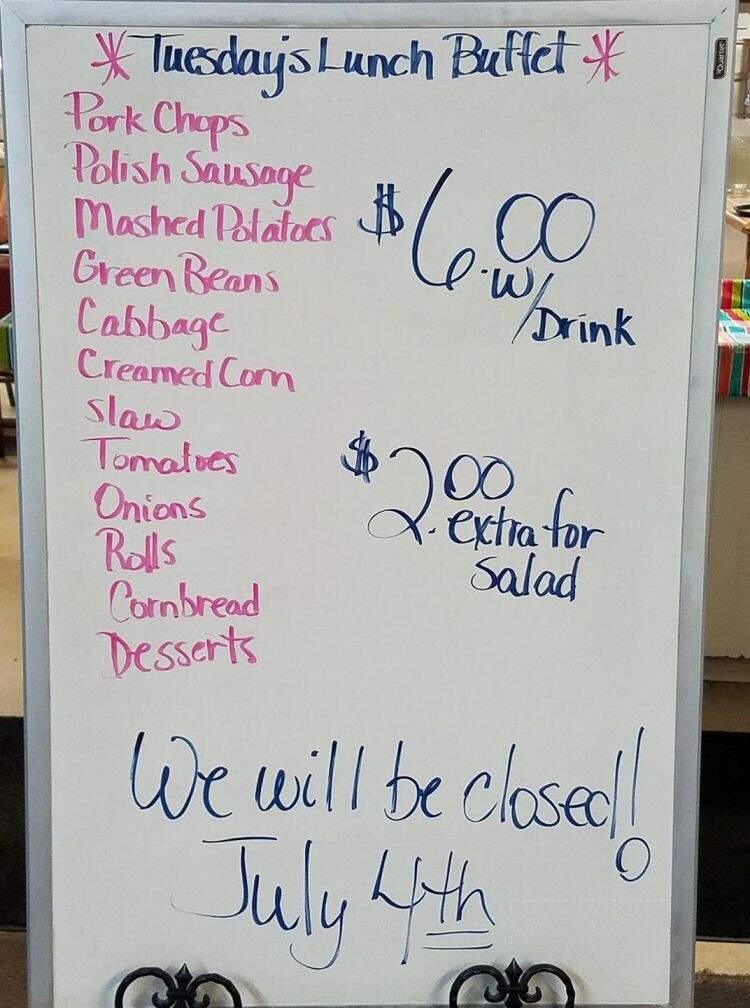 Tuesday's Lunch Buffet
Quartet
Pork Chops
Polish Sausage
Mashed Potatoes
Green Beans
Cabbage
Creamed Corn
Slaw
Tomatoes
Onions
Rolls
Cornbread
Desserts
$6.00
w/Drink
$2.00
extra for
Salad
We will be closed!
July 4th